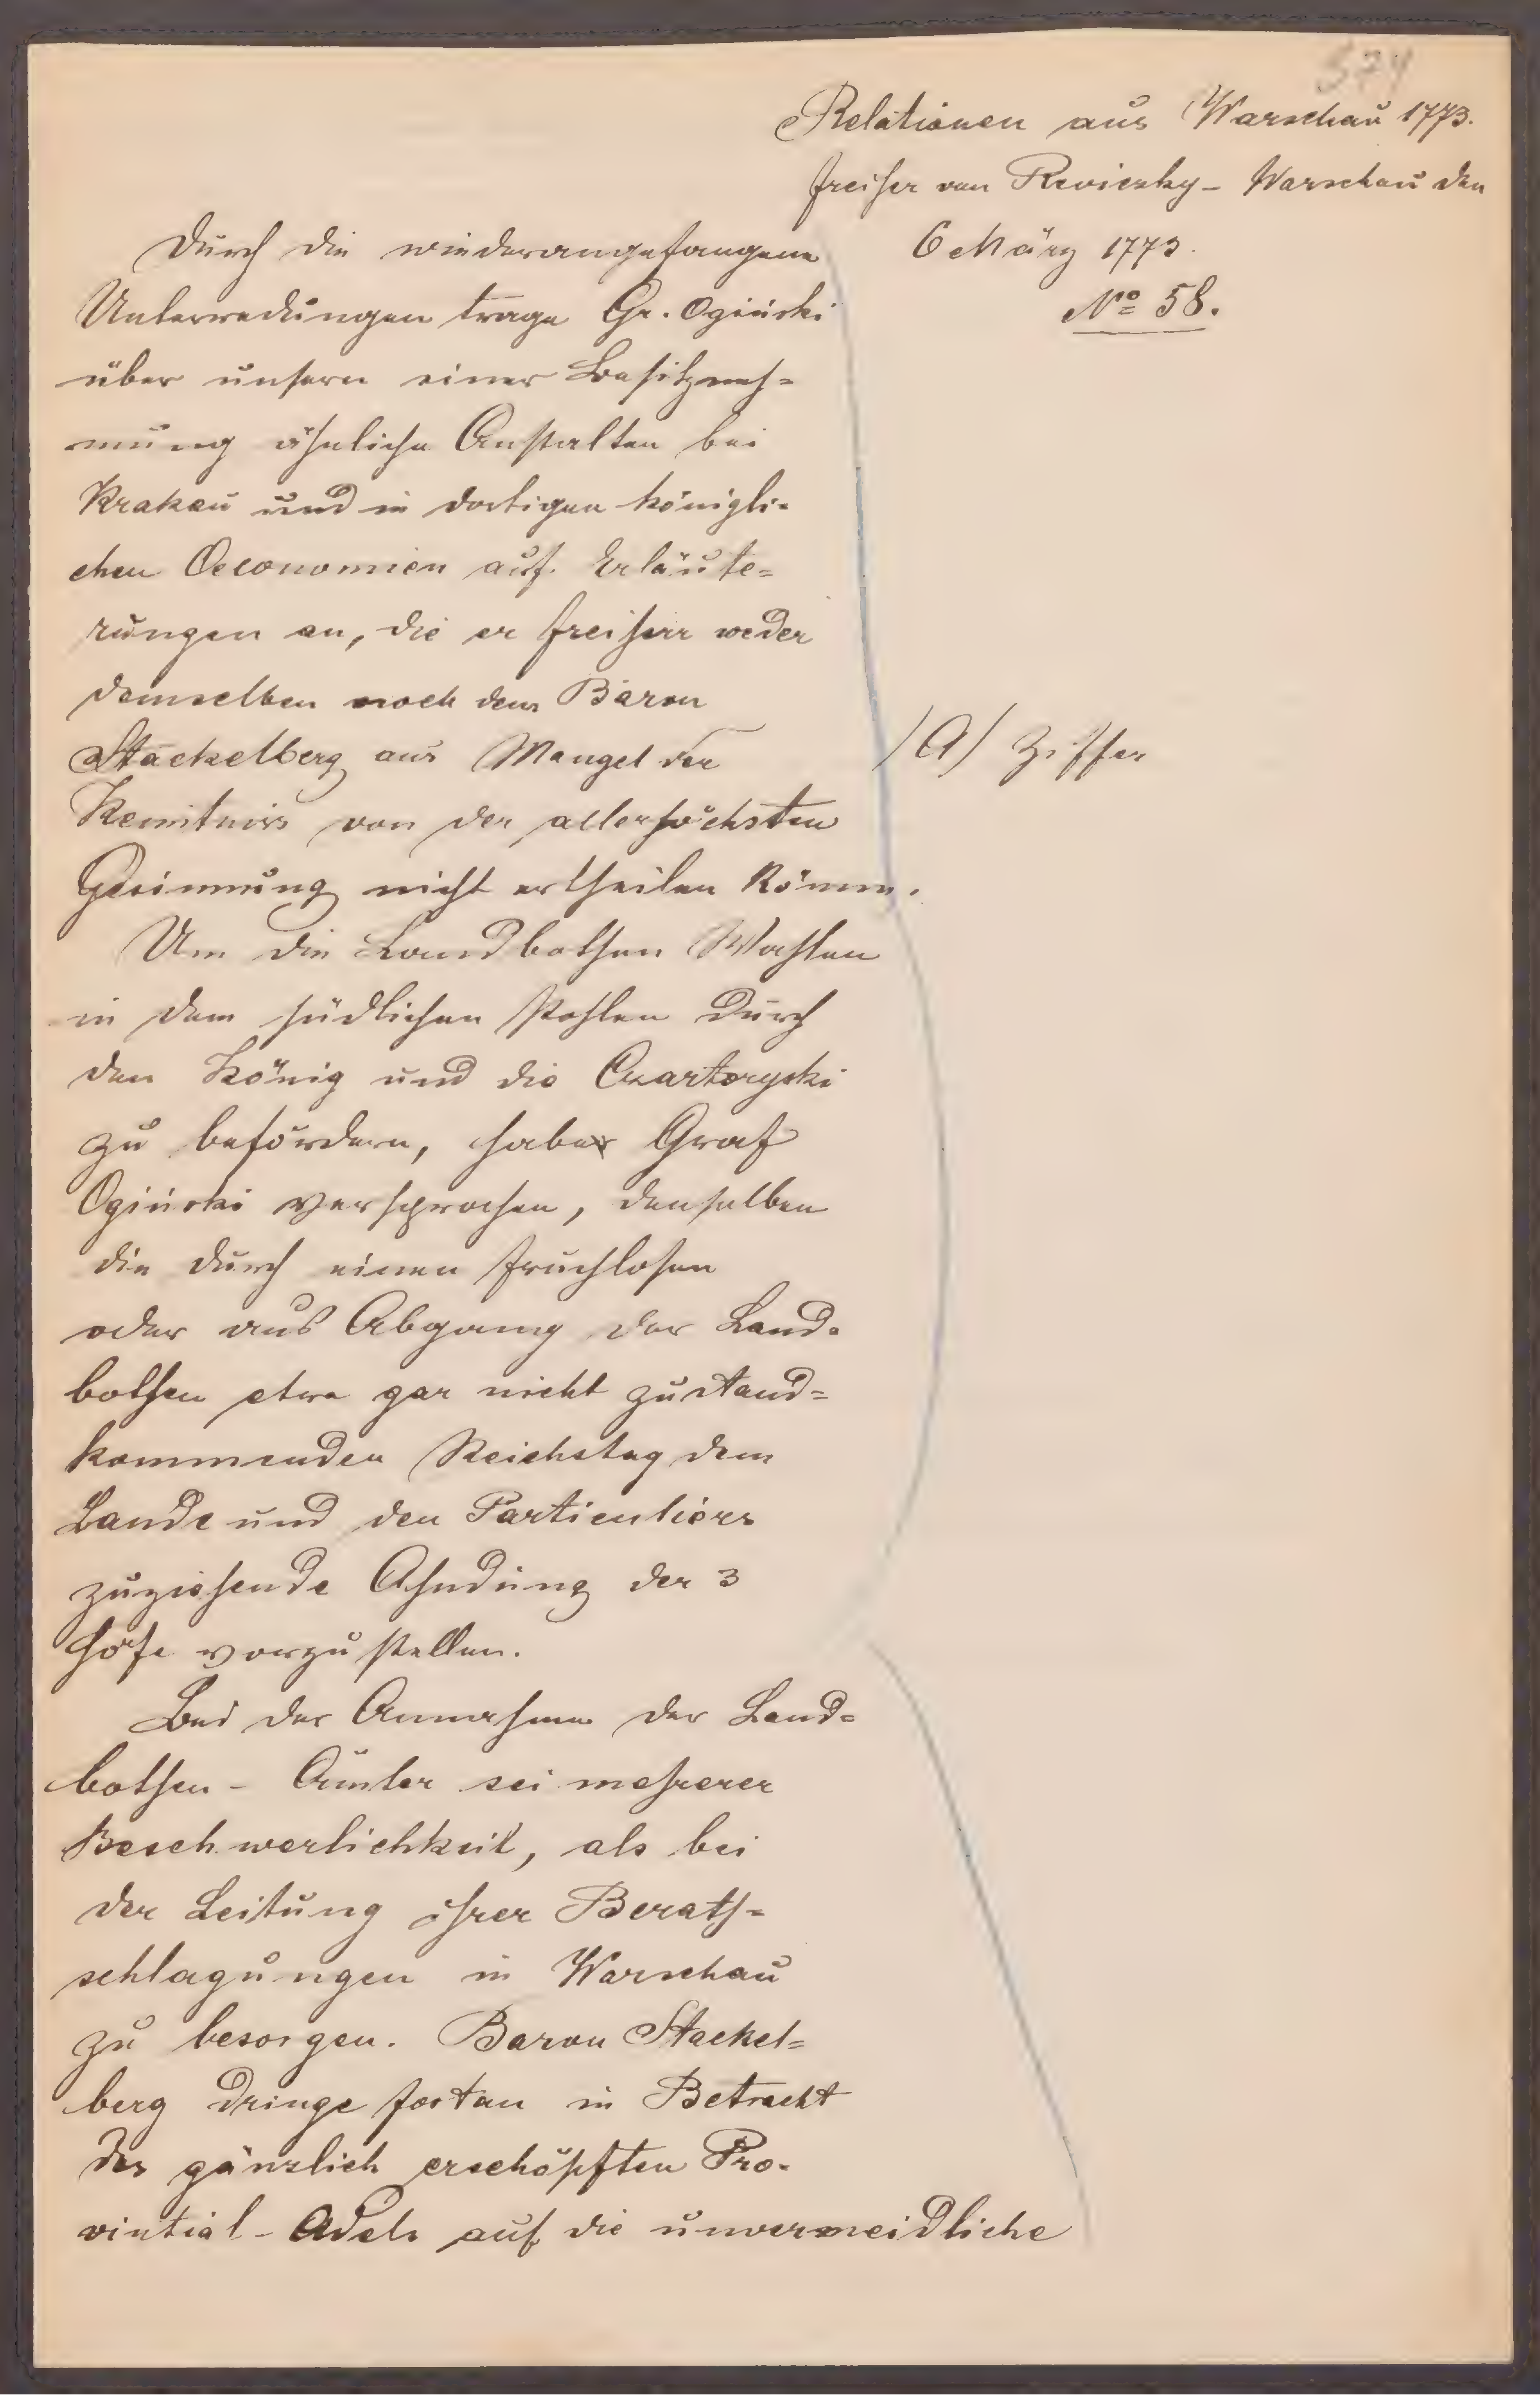 574
Relationen aus Warschau 1773.
Freiher von Reviczky – Warschau den
6 März 1773.
No 58.
Durch die wiederangefangene
Unterredungen trage Gr. Ogiński
über unsern einer Besitzneh=
mung ähnliche Anstalten bei
Krakau und in dortigen königli=
chen Oeconomien auf Erläute=
rungen an, die er Freiherr weder
demselben noch dem Baron
Stackelberg aus Mangel der
Kenntniss von der allerhöchsten
Gesinnung nicht ertheilen könne.
/A/ Ziffer
Um die Landbothen Wahlen
in dem südlichen Pohlen durch
den König und die Czartoryski
zu befördern, habe Graf
Ogiński versprochen, denselben
die durch einen fruchlosen
oder aus Abgang der Land=
bothen etwa gar nicht zustand=
kommenden Reichstag dem
Lande und den Particuliers
zuziehende Ahndung der 3
Höfe vorzustellen.
Bei der Annahme der Land=
bothen – Ämter sei mehrerer
Beschwerlichkeit, als bei
der Leitung ihrer Berath=
schlagungen in Warschau
zu besorgen. Baron Stackel=
berg dringe fortan in Betracht
des gänzlich erschöpften Pro=
vintial – Adels auf die unvermeidliche